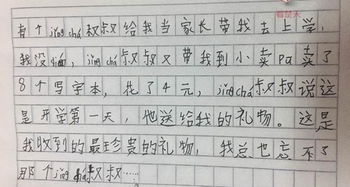 有个jǐng chá叔叔给我当家长带我去上学,
我没,jǐng chá叔叔又带到小卖Pa卖了
8个写字本,花了4元,jǐng chá叔叔说这
是开学第一天,他送给我的礼物。这是
我收到的最珍贵的礼物,我总也忘不了
那个jǐng chá叔叔……